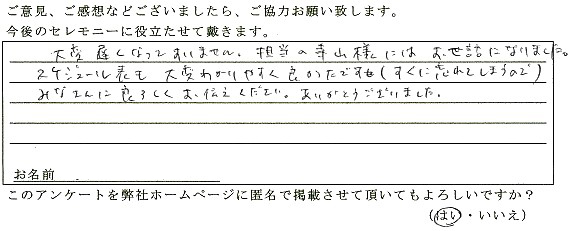 ご意見、ご感想などございましたら、ご協力お願い致します。
今後のセレモニーに役立たせて戴きます。
大変遅くなってすいません。担当の寺山様にはお世話になりました。
スケジュール表も大変わかりやすく良かったです(すぐに忘れてしまうので)
みなさんに良ろしくお伝えください。ありがとうございました。
お名前
このアンケートを弊社ホームページに匿名で掲載させて頂いてもよろしいですか？
(はい・いいえ)